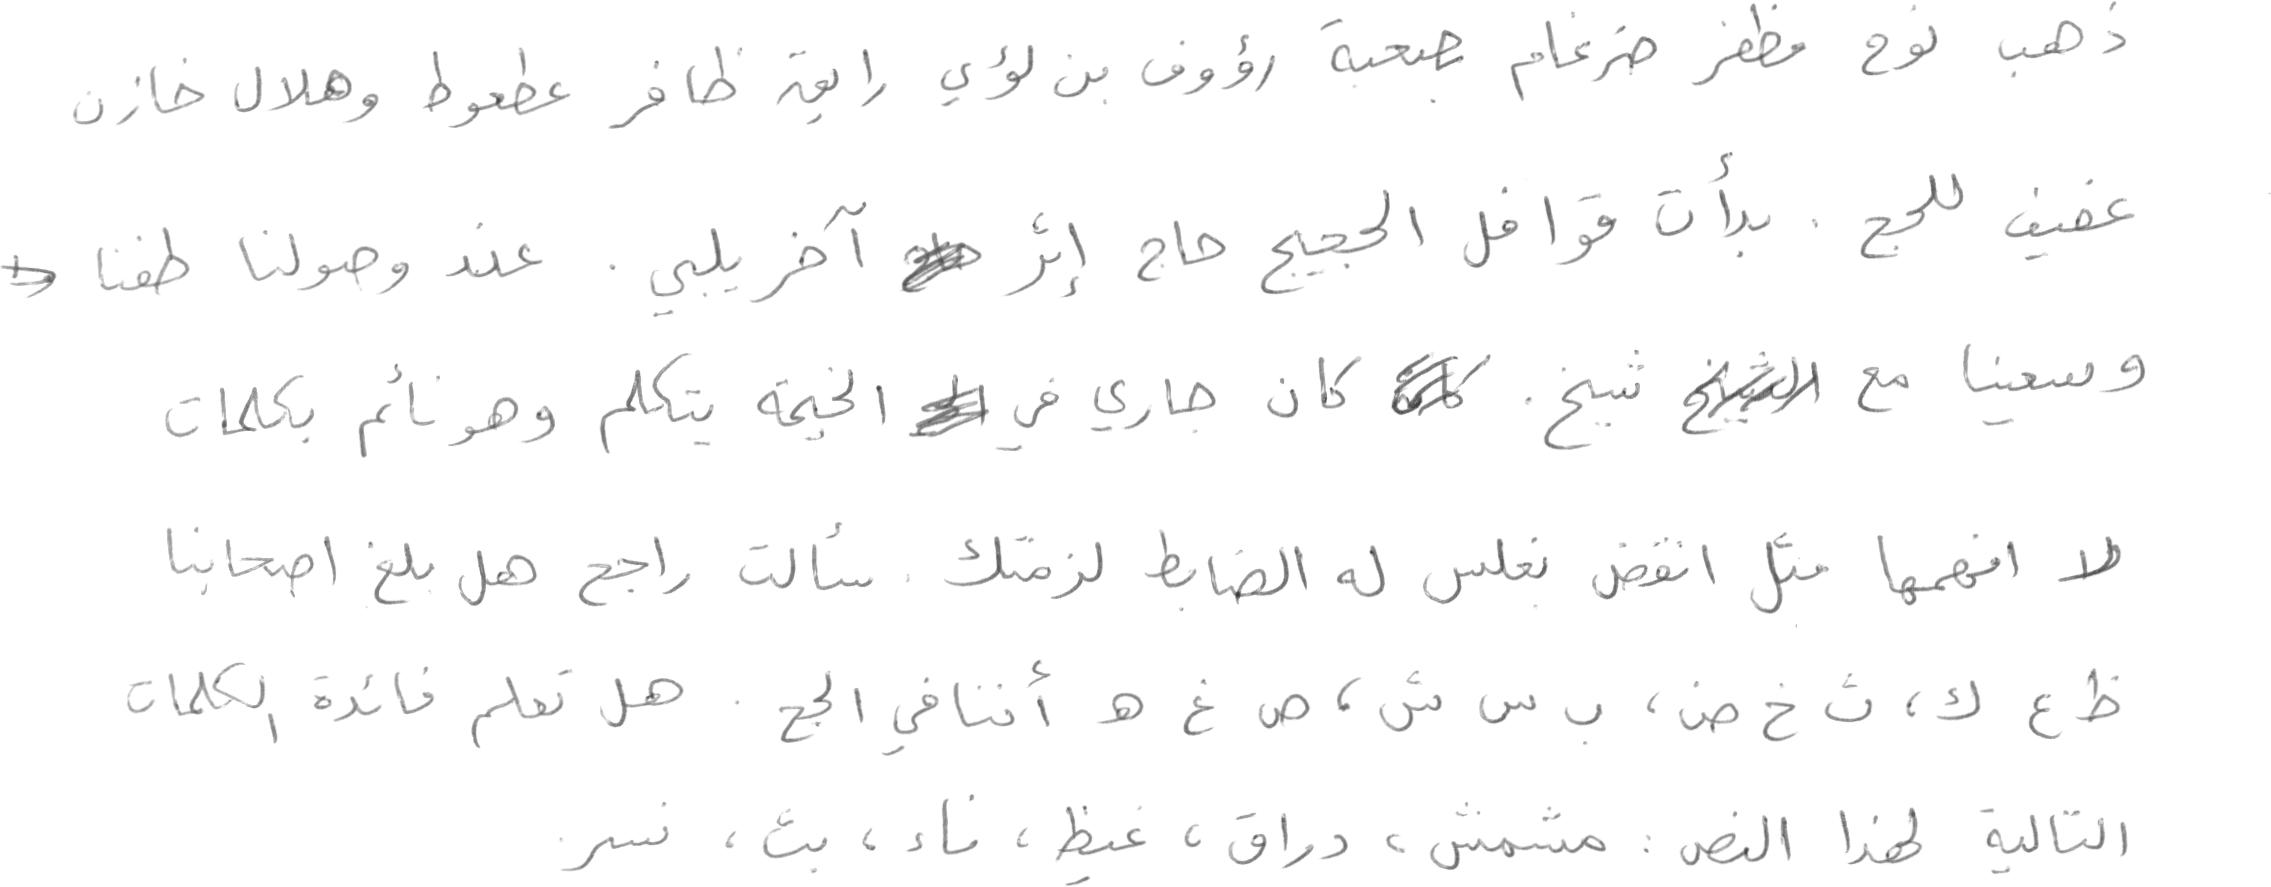 ذهب نوح مظفر ضرغام بصحبة رؤوف بن لؤي رايق ظافر عطعوط وهلال خازن
عفيف للحج . بدأت قوافل الحجيج حاج إثر آخر يلبي . عند وصولنا طفنا
وسعينا مع شيخ . كان جاري في الخيمة يتكلم وهو نائم بكلمات
لا افهمها مثل انقض نغلس له الضابط لزمتك . سألت راجح هل بلغ اصحابنا
ظ ع ك ، ث خ ض ، ب س ش ، ص غ ه أننا في الحج . هل تعلم فائدة الكلمات
التالية لهذا النص : مشمش ، دراق ، غيظ ، ناء ، بث ، نسر .